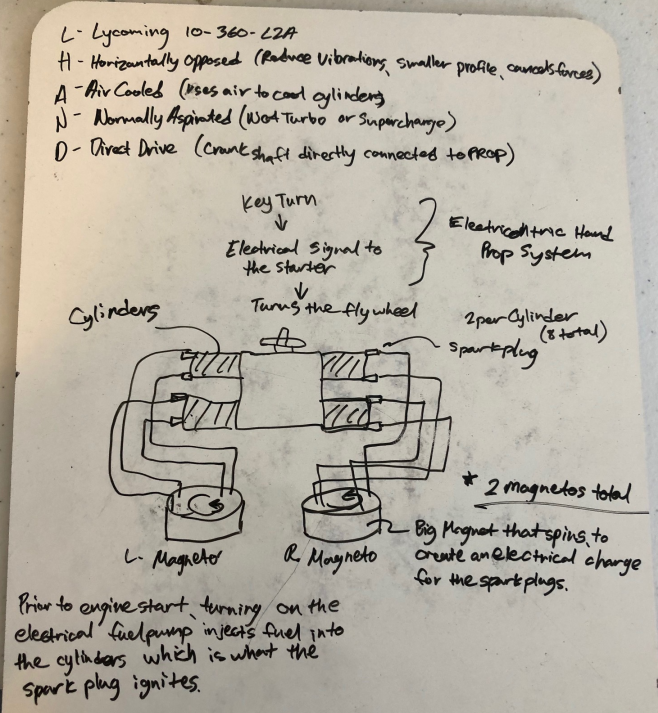 L - Lycoming 10-360-L2A
H - Horizontally opposed (Reduce Vibrations, smaller profile, cancels forces)
A - Air Cooled (uses air to cool cylinders)
N - Normally Aspirated (Not Turbo or Supercharge)
D - Direct Drive (Crankshaft directly connected to PROP)
Key Turn
Electrical Signal to
the starter
Turns the flywheel
Hand
Prop System
Cylinders
2 per Cylinder
(8 total)
Sparkplug
* 2 magnetos total
L. Magneto
R. Magneto
Big Magnet that spins, to
create an electrical charge
for the spark plugs.
Prior to engine start, turning on the
electrical fuel pump injects fuel into
the cylinders which is what the
spark plug ignites.